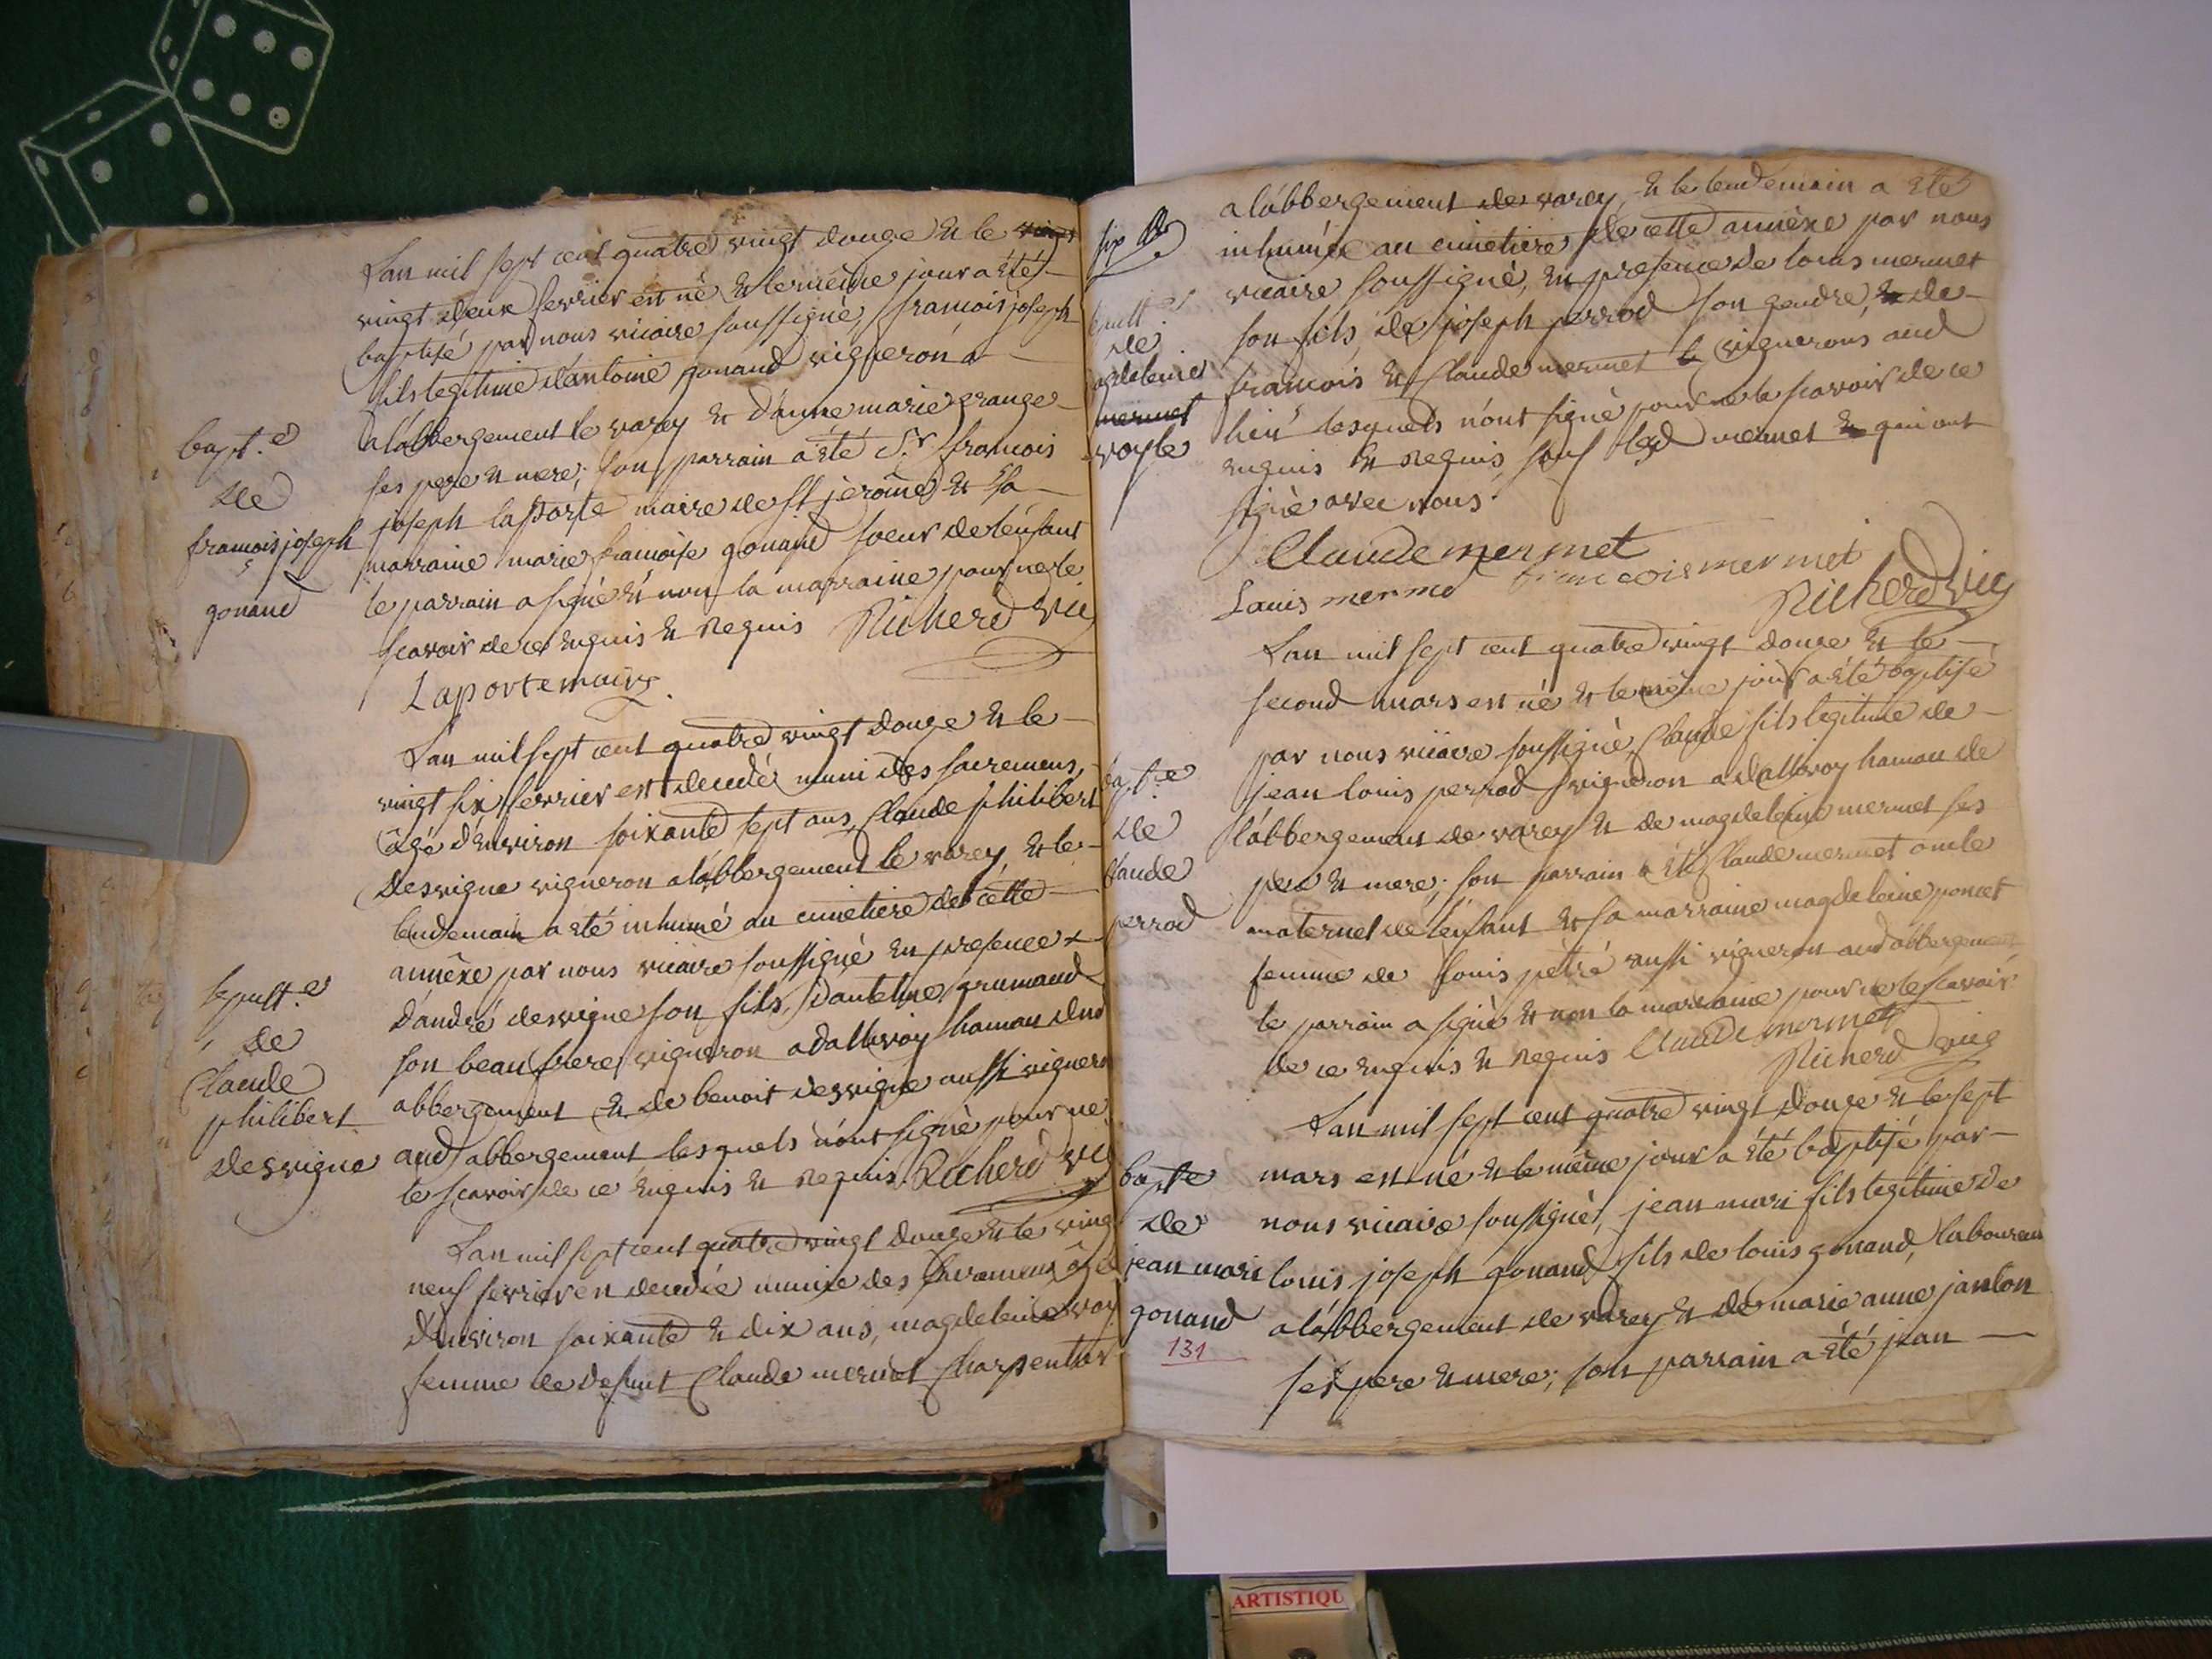 bapt.e
de
francois joseph
gonand
Lan mil sept cent quatre vingt douze et le
vingt deux fevrier est né et le même jour a été
baptisé par nous vicaire soussigné, francois joseph
fils legitime d'antoine gonand vigneron a
l'abbergement de varey et d'anne marie grange
ses pere et mere; son parrain a été S.r francois
joseph laporte maire de st jerôme et sa
marraine marie francoise gonand soeur de l'enfant
le parrain a signé et non la marraine pour ne le
scavoir de ce enquis et requis Richerd vic
Laporte maire
sepult.e
de
Claude
philibert
desvigne
Lan mil sept cent quatre vingt douze et le
vingt six fevrier est decedé muni des sacremens,
âgé d'environ soixante sept ans, Claude philibert
desvigne vigneron a l'abbergement de varey, et le
lendemain a été inhumé au cimetiere de cette
annêxe par nous vicaire soussigné en presence
d'andré desvigne son fils, d'antelme grumand
son beau frere, vigneron a dallivoy hamau dud
abbergement et de benoit desvigne aussi vigneron
aud abbergement lesquels n'ont signé pour ne
le scavoir de ce enquis et requis Richerd vic
Lan mil sept cent quatre vingt douze et le vingt
neuf fevrier est decedée munie des sacremens âgée
d'environ soixante et dix ans, magdeleine voy
femme de defunt Claude mermet charpentier
de
magdeleine
mermet
voyle
a l'abbergement de varey, et le lendemain a été
inhumée au cimetiere de cette annêxe par nous
vicaire soussigné, en presence de louis mermet
son fils, de joseph perrod son gendre, de
francois et Claude mermet vignerons aud
lieu lesquels n'ont signé pour ne le scavoir de ce
enquis et requis, sauf mermet qui ont
signé avec nous
Claude mermet
francois mermet
Louis mermet
Richerd vic
bapt.e
de
Claude
perrod
Lan mil sept cent quatre vingt douze et le
second mars est né et le même jour a été baptisé
par nous vicaire soussigné, Claude fils legitime de
jean louis perrod vigneron a dallivoy hamau de
l'abbergement de varey et de magdeleine mermet ses
pere et mere; son parrain a été Claude mermet oncle
maternel de l'enfant et sa marraine magdeleine poncet
femme de louis petré aussi vigneron aud abbergement
le parrain a signé et non la marraine pour ne le scavoir
de ce enquis et requis Claude mermet
Richerd vic
bapt.e
de
jean mari
gonand
131
Lan mil sept cent quatre vingt douze et le sept
mars est né et le même jour a été baptisé par
nous vicaire soussigné, jean mari fils legitime de
louis joseph gonand fils de louis gonand, laboureur
a l'abbergement de varey et de marie anne janton
ses pere et mere; son parrain a été jean
ARTISTIQU